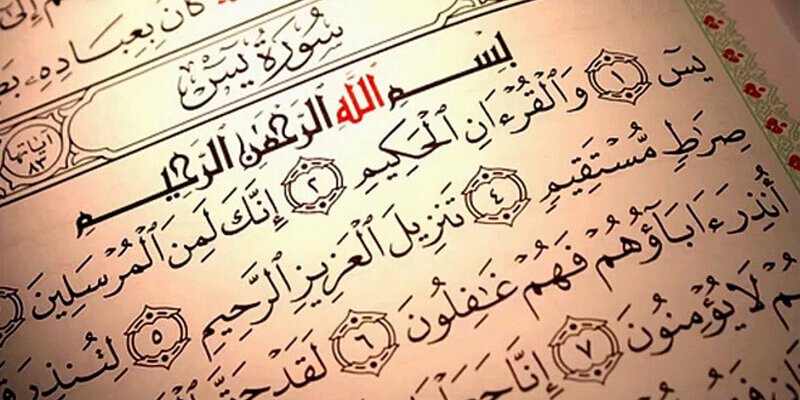 كَانَ بِعِبَادِهِۦ
سُورَةُ يسٓ
آيَاتُهَا ٨٣
بِسْمِ ٱللَّهِ ٱلرَّحْمَٰنِ ٱلرَّحِيمِ
يسٓ ١ وَٱلْقُرْءَانِ ٱلْحَكِيمِ ٢ إِنَّكَ لَمِنَ ٱلْمُرْسَلِينَ
صِرَٰطٍ مُّسْتَقِيمٍ ٤ تَنزِيلَ ٱلْعَزِيزِ ٱلرَّحِيمِ ٥ لِتُنذِرَ
أُنذِرَ ءَابَآؤُهُمْ فَهُمْ غَٰفِلُونَ ٦ لَقَدْ حَقَّ
لَا يُؤْمِنُونَ ٧ إِنَّا جَعَلْنَا